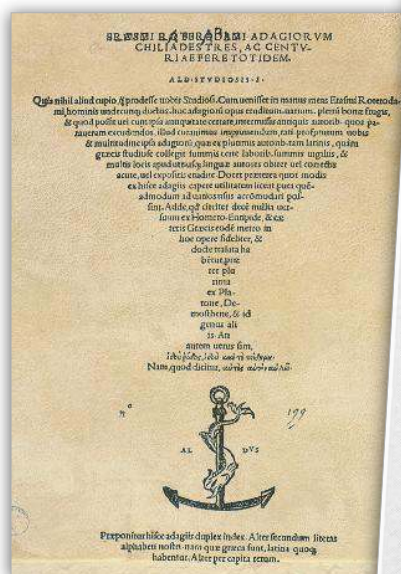 ERASMI ROTERODAMI ADAGIORVM
CHILIADES TRES, AC CENTV-
RIAE FERE TOTIDEM.
ALD·STVDIOSIS·S·
Quia nihil aliud cupio, prodesse uobis Studiosi. Cum uenisset in manus meas Erasmi Roteroda-
mi, hominis undecunq; doctiss. hoc adagiorū opus eruditum. uarium. plenū bonæ frugis,
& quod possit uel cum ipsa antiquitate certare, intermissis antiquis autorib. quos pa-
raueram excudendos, illud curauimus imprimendum, rati profuturum uobis
& multitudine ipsa adagiorū, quæ ex plurimis autorib. tam latinis, quàm
græcis studiose collegit summis certe laborib. summis uigiliis, &
multis locis apud utriusq; linguæ autores obiter uel correctis
acute, uel expositis erudite. Docet præterea quot modis
ex hisce adagiis capere utilitatem liceat, puta quē-
admodum ad uarios usus accōmodari pos-
sint. Adde, qd circiter decē millia uer-
suum ex Homero Euripide, & cæ
teris Græcis eodē metro in
hoc opere fideliter, &
docte tralata ha
bētur, præ
ter plu
rima
ex Pla-
tone, De-
mosthene, & id
genus ali
is. An
autem uerus sim,
ἰδοὺ ῥόδος, ἰδοὺ καὶ τὸ πήδημα.
Nam, quod dicitur, αὐτὸς αὐτὸν αὐλεῖ.
n°
199
AL DVS
Præponitur hisce adagiis duplex index. Alter secundum literas
alphabeti nostri. nam quæ græca sunt, latina quoq;
habentur. Alter per capita rerum.